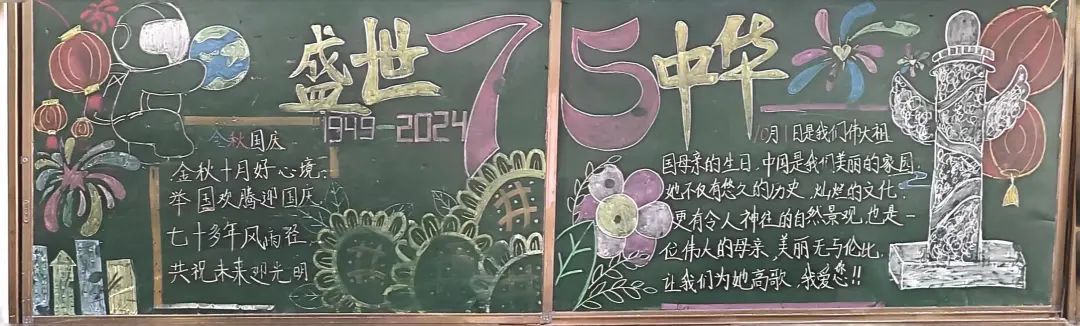 盛世75中华
1949-2024
金秋国庆
金秋十月好心境,
举国欢腾迎国庆
七十多年风雨径,
共祝未来观光明
10月1日是我们伟大祖
国母亲的生日,中国是我们美丽的家园,
她不仅有悠久的历史,灿烂的文化,
更有令人神往的自然景观,也是一
位伟大的母亲,美丽无与伦比,
让我们为她高歌,我爱您!!